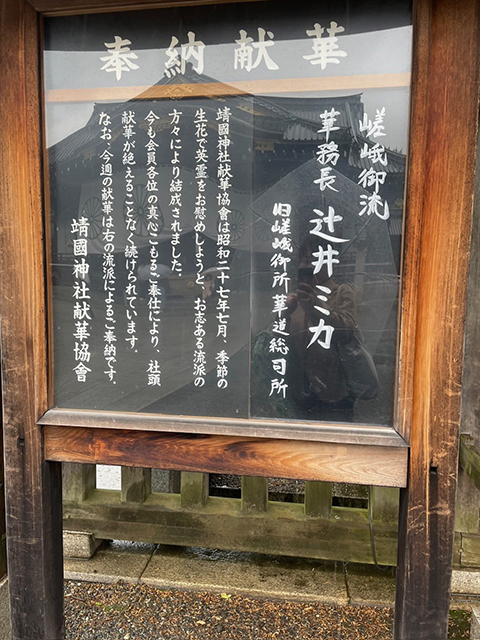 奉納献華
嵯峨御流
華務長 辻井ミカ
旧嵯峨御所華道総司所
靖國神社献華協會は昭和二十七年七月、季節の
生花で英霊をお慰めしようと、お志ある流派の
方々により結成されました。
今も会員各位の真心こもるご奉仕により、社頭
献華が絶えることなく続けられています。
なお、今週の献華は右の流派によるご奉納です。
靖國神社献華協會